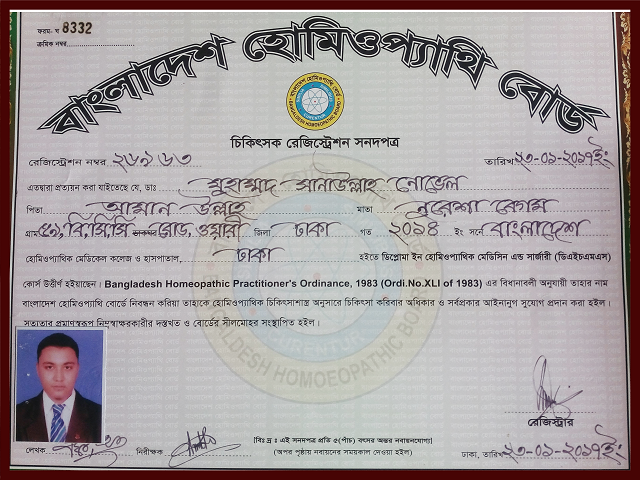 ফরম- ঘ 8332
ক্রমিক নম্বর
বাংলাদেশ হোমিওপ্যাথি বোর্ড
চিকিৎসক রেজিস্ট্রেশন সনদপত্র
রেজিস্ট্রেশন নম্বর ২৬৯৬৩ তারিখ ২৩-০১-২০১৭ইং
এতদ্বারা প্রত্যয়ন করা যাইতেছে যে, ডাঃ মুহাম্মদ সানাউল্লাহ নোভেল
পিতা আমান উল্লাহ মাতা নুরেশা বেগম
গ্রাম ৫১, বি,সি,সি ডাকঘর রোড, ওয়ারী জিলা ঢাকা গত ২০১৪ ইং সনে বাংলাদেশ
হোমিওপ্যাথিক মেডিকেল কলেজ ও হাসপাতাল, ঢাকা হইতে ডিপ্লোমা ইন হোমিওপ্যাথিক মেডিসিন এন্ড সার্জারী (ডিএইচএমএস)
কোর্স উত্তীর্ণ হইয়াছেন। Bangladesh Homeopathic Practitioner's Ordinance, 1983 (Ordi.No.XLI of 1983) এর বিধানাবলী অনুযায়ী তাহার নাম
বাংলাদেশ হোমিওপ্যাথি বোর্ডে নিবন্ধন করিয়া তাহাকে হোমিওপ্যাথিক চিকিৎসাশাস্ত্র অনুসারে চিকিৎসা করিবার অধিকার ও সর্বপ্রকার আইনানুগ সুযোগ প্রদান করা হইল।
সত্যতার প্রমাণস্বরূপ নিম্নস্বাক্ষরকারীর দস্তখত ও বোর্ডের সীলমোহর সংস্থাপিত হইল।
রেজিস্ট্রার
লেখক নিরীক্ষক
[বিঃ দ্রঃ এই সনদপত্র প্রতি ৫(পাঁচ) বৎসর অন্তর নবায়নযোগ্য]
(অপর পৃষ্ঠায় নবায়নের সময়কাল দেওয়া হইল)
ঢাকা, তারিখ ২৩-০১-২০১৭ইং